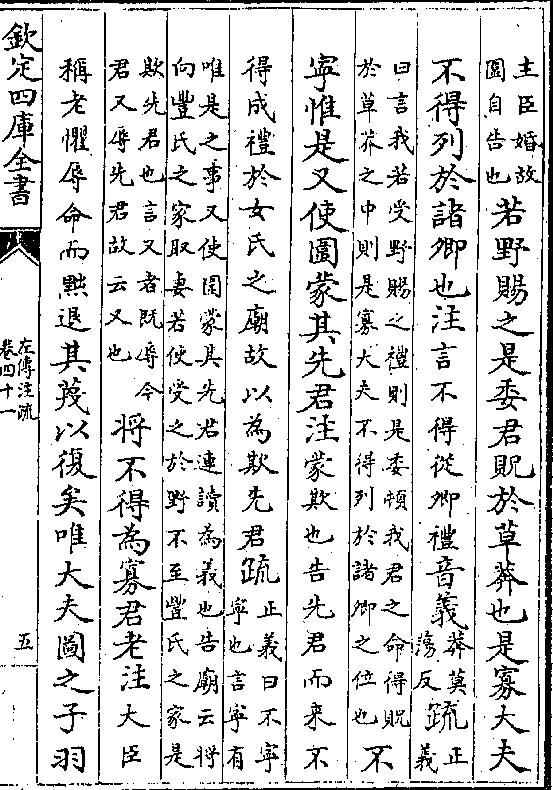 主臣婚故
圍自告也
若野賜之是委君貺於草莽也是寡大夫
不得列於諸卿也注言不得從卿禮音義
莽莫
蕩反
疏
正
義
曰言我若受野賜之禮則是委頓我君之命得貺
於草莽之中則是寡大夫不得列於諸卿之位也
不
寜惟是又使圍蒙其先君注蒙欺也告先君而來不
得成禮於女氏之廟故以為欺先君疏
正義曰不寜
寜也言寜有
唯是之事又使圍蒙其先君連讀為義也告廟云將
向豐氏之家取妻若使受之於野不至豐氏之家是
欺先君也言又者既辱今
君又辱先君故云又也
將不得為寡君老注大臣
稱老懼辱命而黜退其蔑以復矣唯大夫圖之子羽
欽定四庫全書
左傳注疏
卷四十一
五